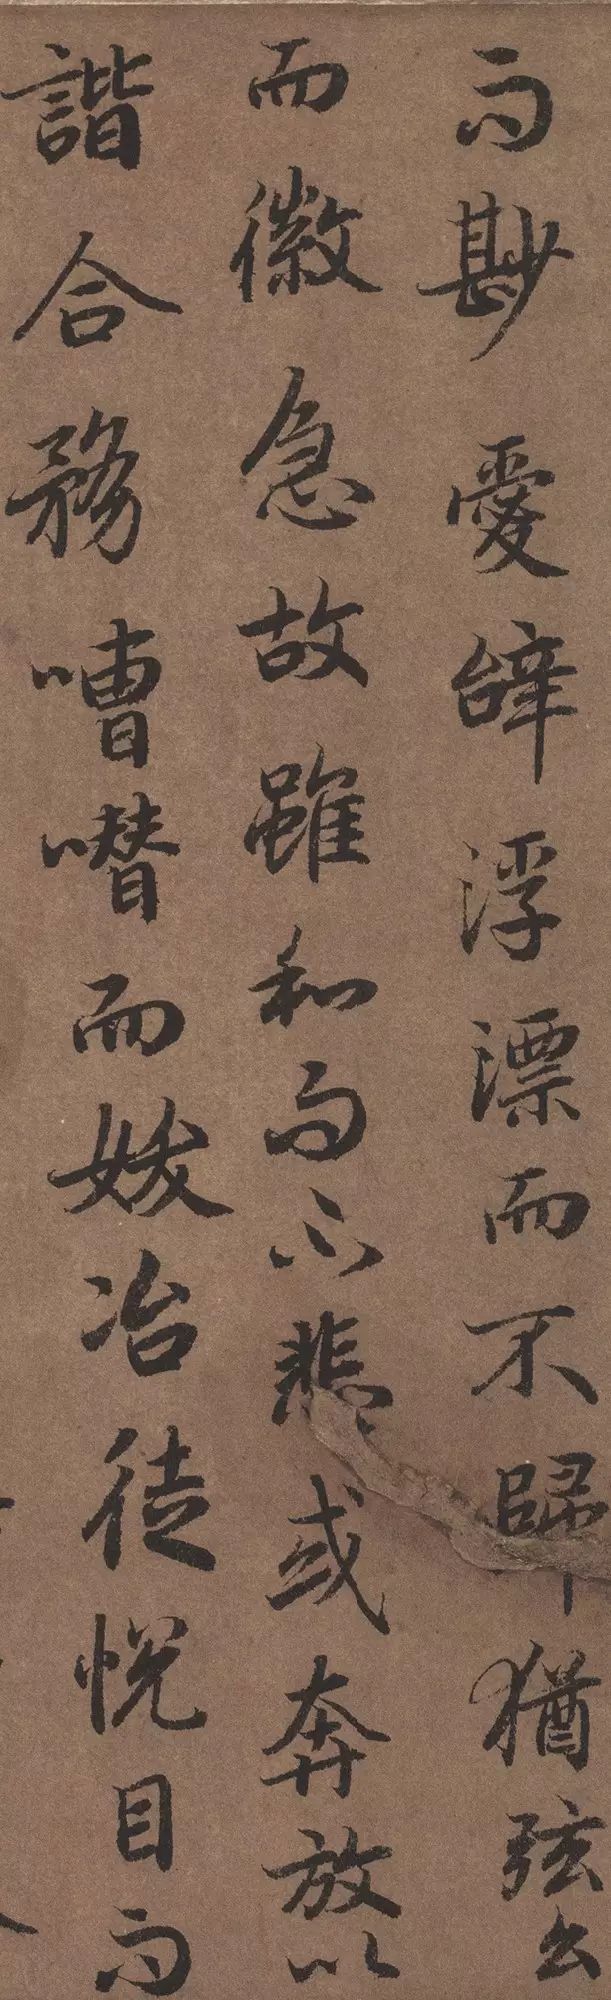 而尠愛辝浮漂而不歸猶弦么
而徽急故雖和而不悲或奔放以
諧合務嘈噆而妖冶徒悅目而